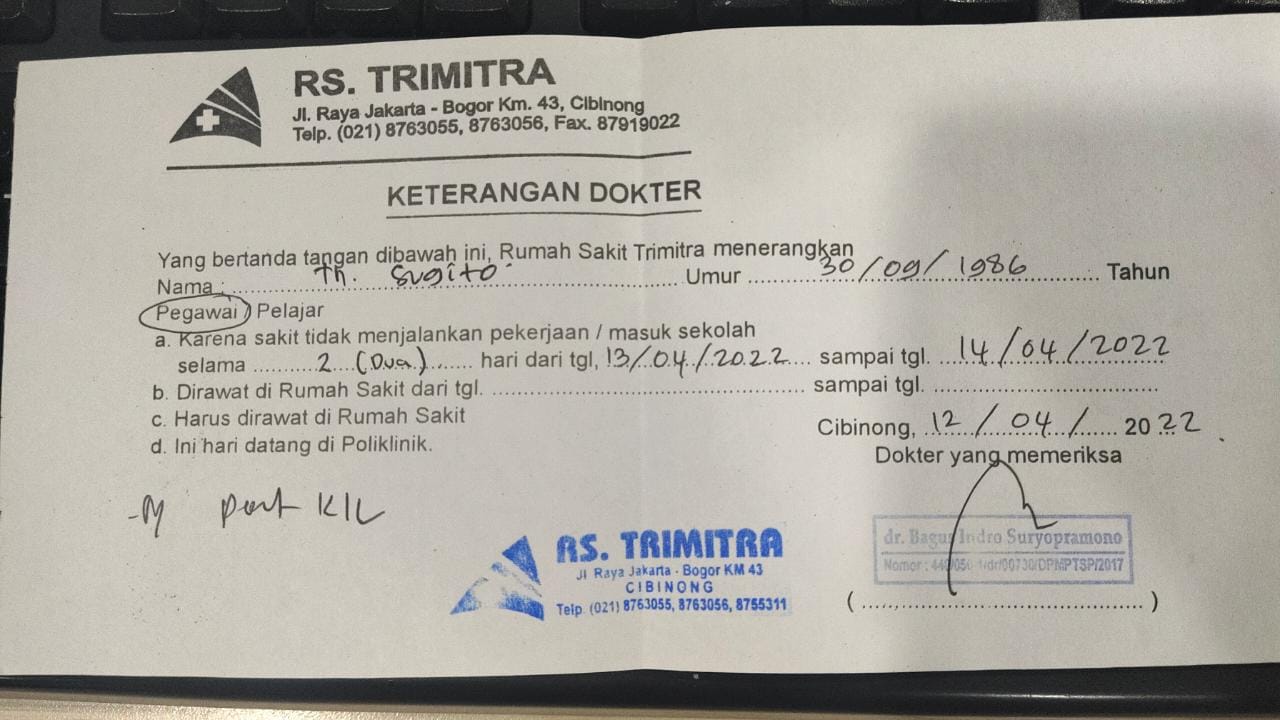 RS. TRIMITRA
Jl. Raya Jakarta - Bogor Km. 43, Cibinong
Telp. (021) 8763055, 8763056, Fax. 87919022
KETERANGAN DOKTER
Yang bertanda tangan dibawah ini, Rumah Sakit Trimitra menerangkan
Nama : Th. Sugito Umur 30/09/1986 Tahun
Pegawai / Pelajar
a. Karena sakit tidak menjalankan pekerjaan / masuk sekolah
selama 2 (Dua) hari dari tgl, 13/04/2022 sampai tgl. 14/04/2022
b. Dirawat di Rumah Sakit dari tgl. sampai tgl.
c. Harus dirawat di Rumah Sakit
d. Ini hari datang di Poliklinik.
Cibinong, 12/04/ 2022
Dokter yang memeriksa
RS. TRIMITRA
Jl Raya Jakarta - Bogor KM 43
CIBINONG
Telp. (021) 8763055, 8763056, 8755311
dr. Bagus Indro Suryopramono
Nomor :